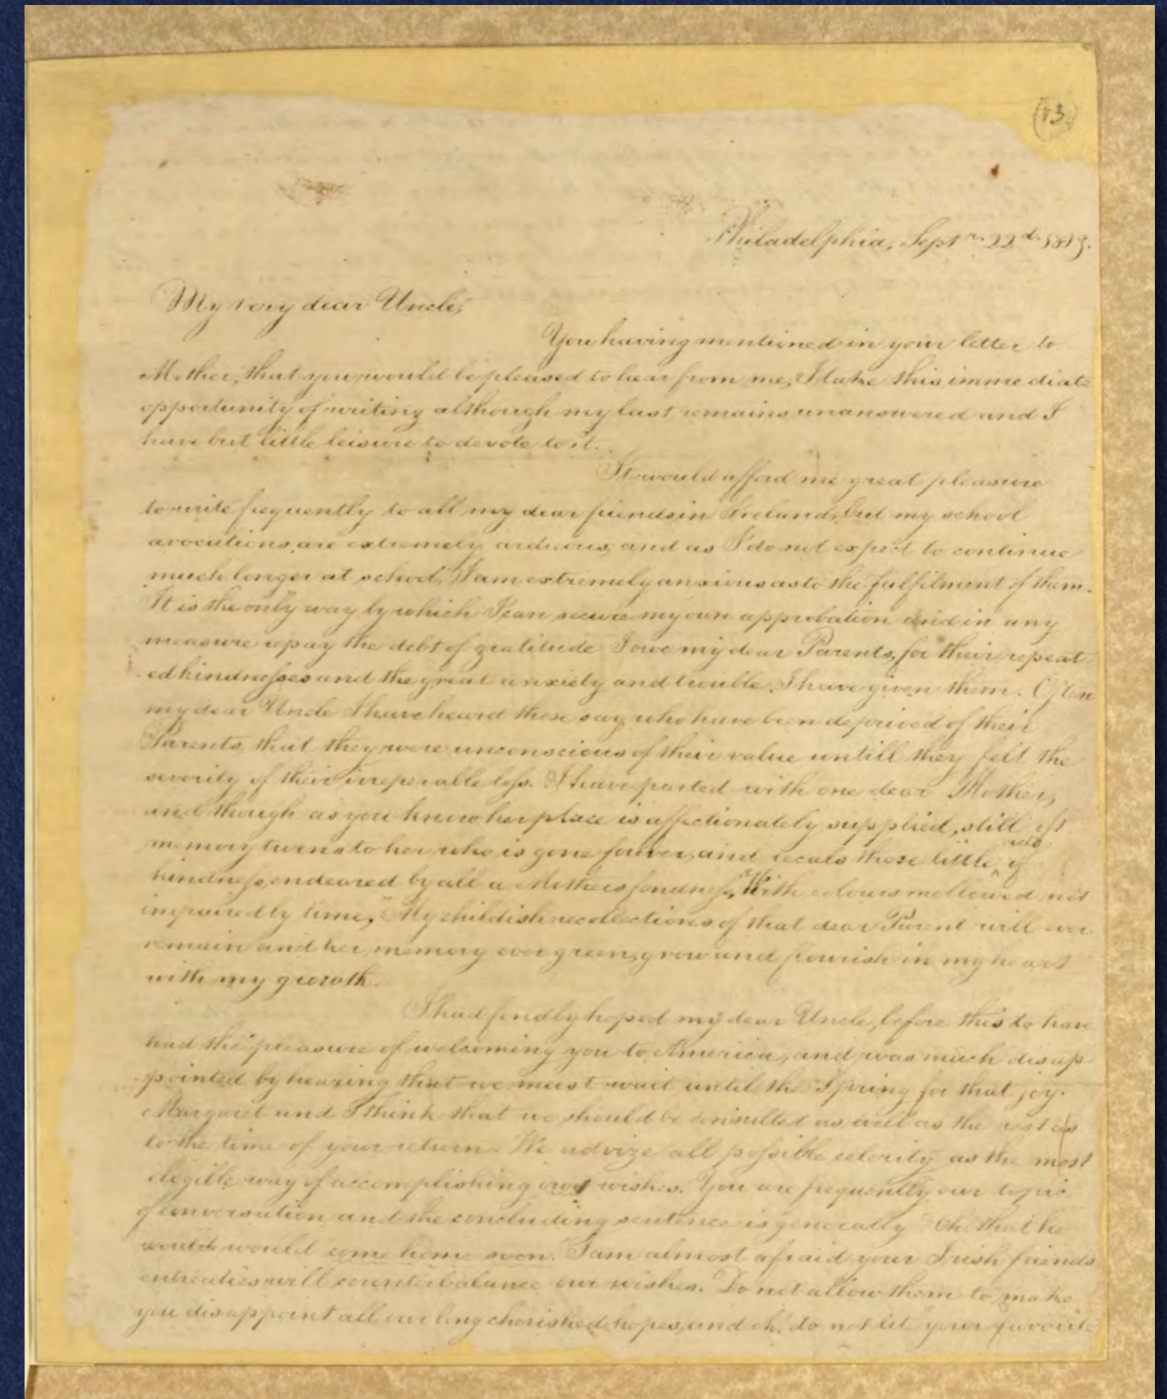 (13)
Philadelphia, Septr. 22d.
My very dear Uncle,
You having mentioned in your letter to
Mother, that you would be pleased to hear from me, I take this immediate
opportunity of writing although my last remains unanswered and I
have but little leisure to devote to it.
It would afford me great pleasure
to write frequently to all my dear friends in Ireland, but my school
avocations are extremely arduous, and as I do not expect to continue
much longer at school, I am extremely anxious as to the fulfilment of them.
It is the only way by which I can secure my own approbation and in any
measure repay the debt of gratitude I owe my dear Parents, for their repeat
ed kindnesses and the great anxiety and trouble I have given them. Often
my dear Uncle I have heard those say, who have been deprived of their
Parents, that they were unconscious of their value untill they felt the
severity of their irreperable loss. I have parted with one dear Mother,
and though as you know her place is affectionately supplied, still
memory turns to her who is gone forever, and recals those little acts of
kindness, endeared by all a Mothers fondness, "With colours mellowed not
impaired by time," My childish recollections of that dear Parent will ever
remain and her memory ever green, grow and flourish in my heart
with my growth.
I had fondly hoped my dear Uncle, before this to have
had the pleasure of welcoming you to America, and was much disap
pointed by hearing that we must wait until the Spring for that joy.
Margaret and I think that we should be consulted as well as the rest as
to the time of your return. We advize all possible celerity as the most
elegible way of accomplishing our wishes. You are frequently our topic
of conversation and the concluding sentence is generally "Oh that he
would come home soon." I am almost afraid your Irish friends
entreaties will counterbalance our wishes. Do not allow them to make
you disappoint all our long cherished hopes, and oh! do not let your favorite